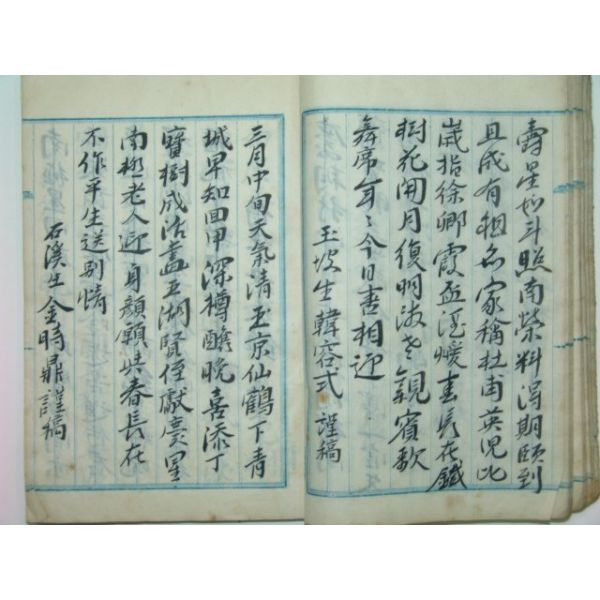 壽星如斗照南榮料得期頤到
且成有祖名家稱杜甫英児比
歲指徐卿霞盃淫煖春長在鐵
樹花開月復明海老親賓歌
舞席年〻今日喜相迎
玉坡生韓容式 謹稿
三月中旬天氣清玉京仙鶴下青
城早知回甲深樽醮晚喜添丁
寶樹成洛畫五湖賢侄獻慶星
南極老人迎身顔願與春長在
不作平生送別情
石溪生金時鼎謹稿